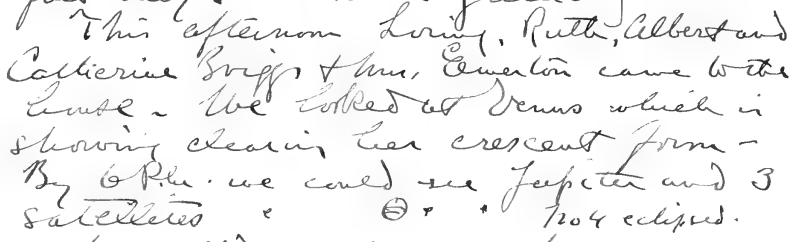 This afternoon Loring, Ruth, Albert and
Catherine Briggs & Mrs. Emerton came to the
house - We looked at Venus which is
showing clearly her crescent form -
By 6 P.M. we could see Jupiter and 3
satellites no 4 eclipsed.